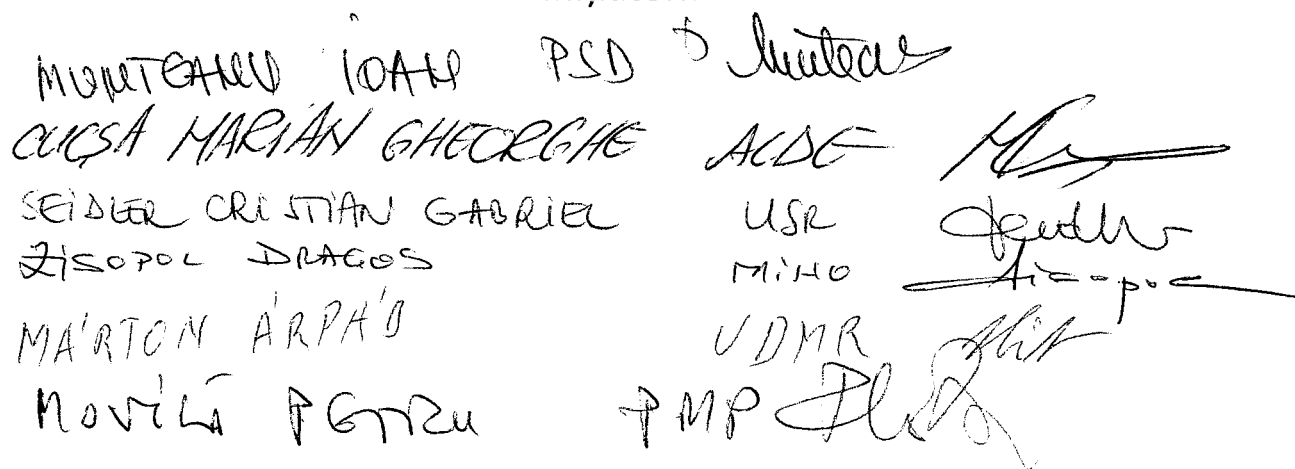 MUNTEANU IOAN PSD Munteanu
CUCȘA MARIAN GHEORGHE ALDE
SEIDLER CRISTIAN GABRIEL USR
ZISOPOL DRAGOS MINO Zisopol
MÁRTON ÁRPÁD UDMR
MOVILĂ PETRU PMP